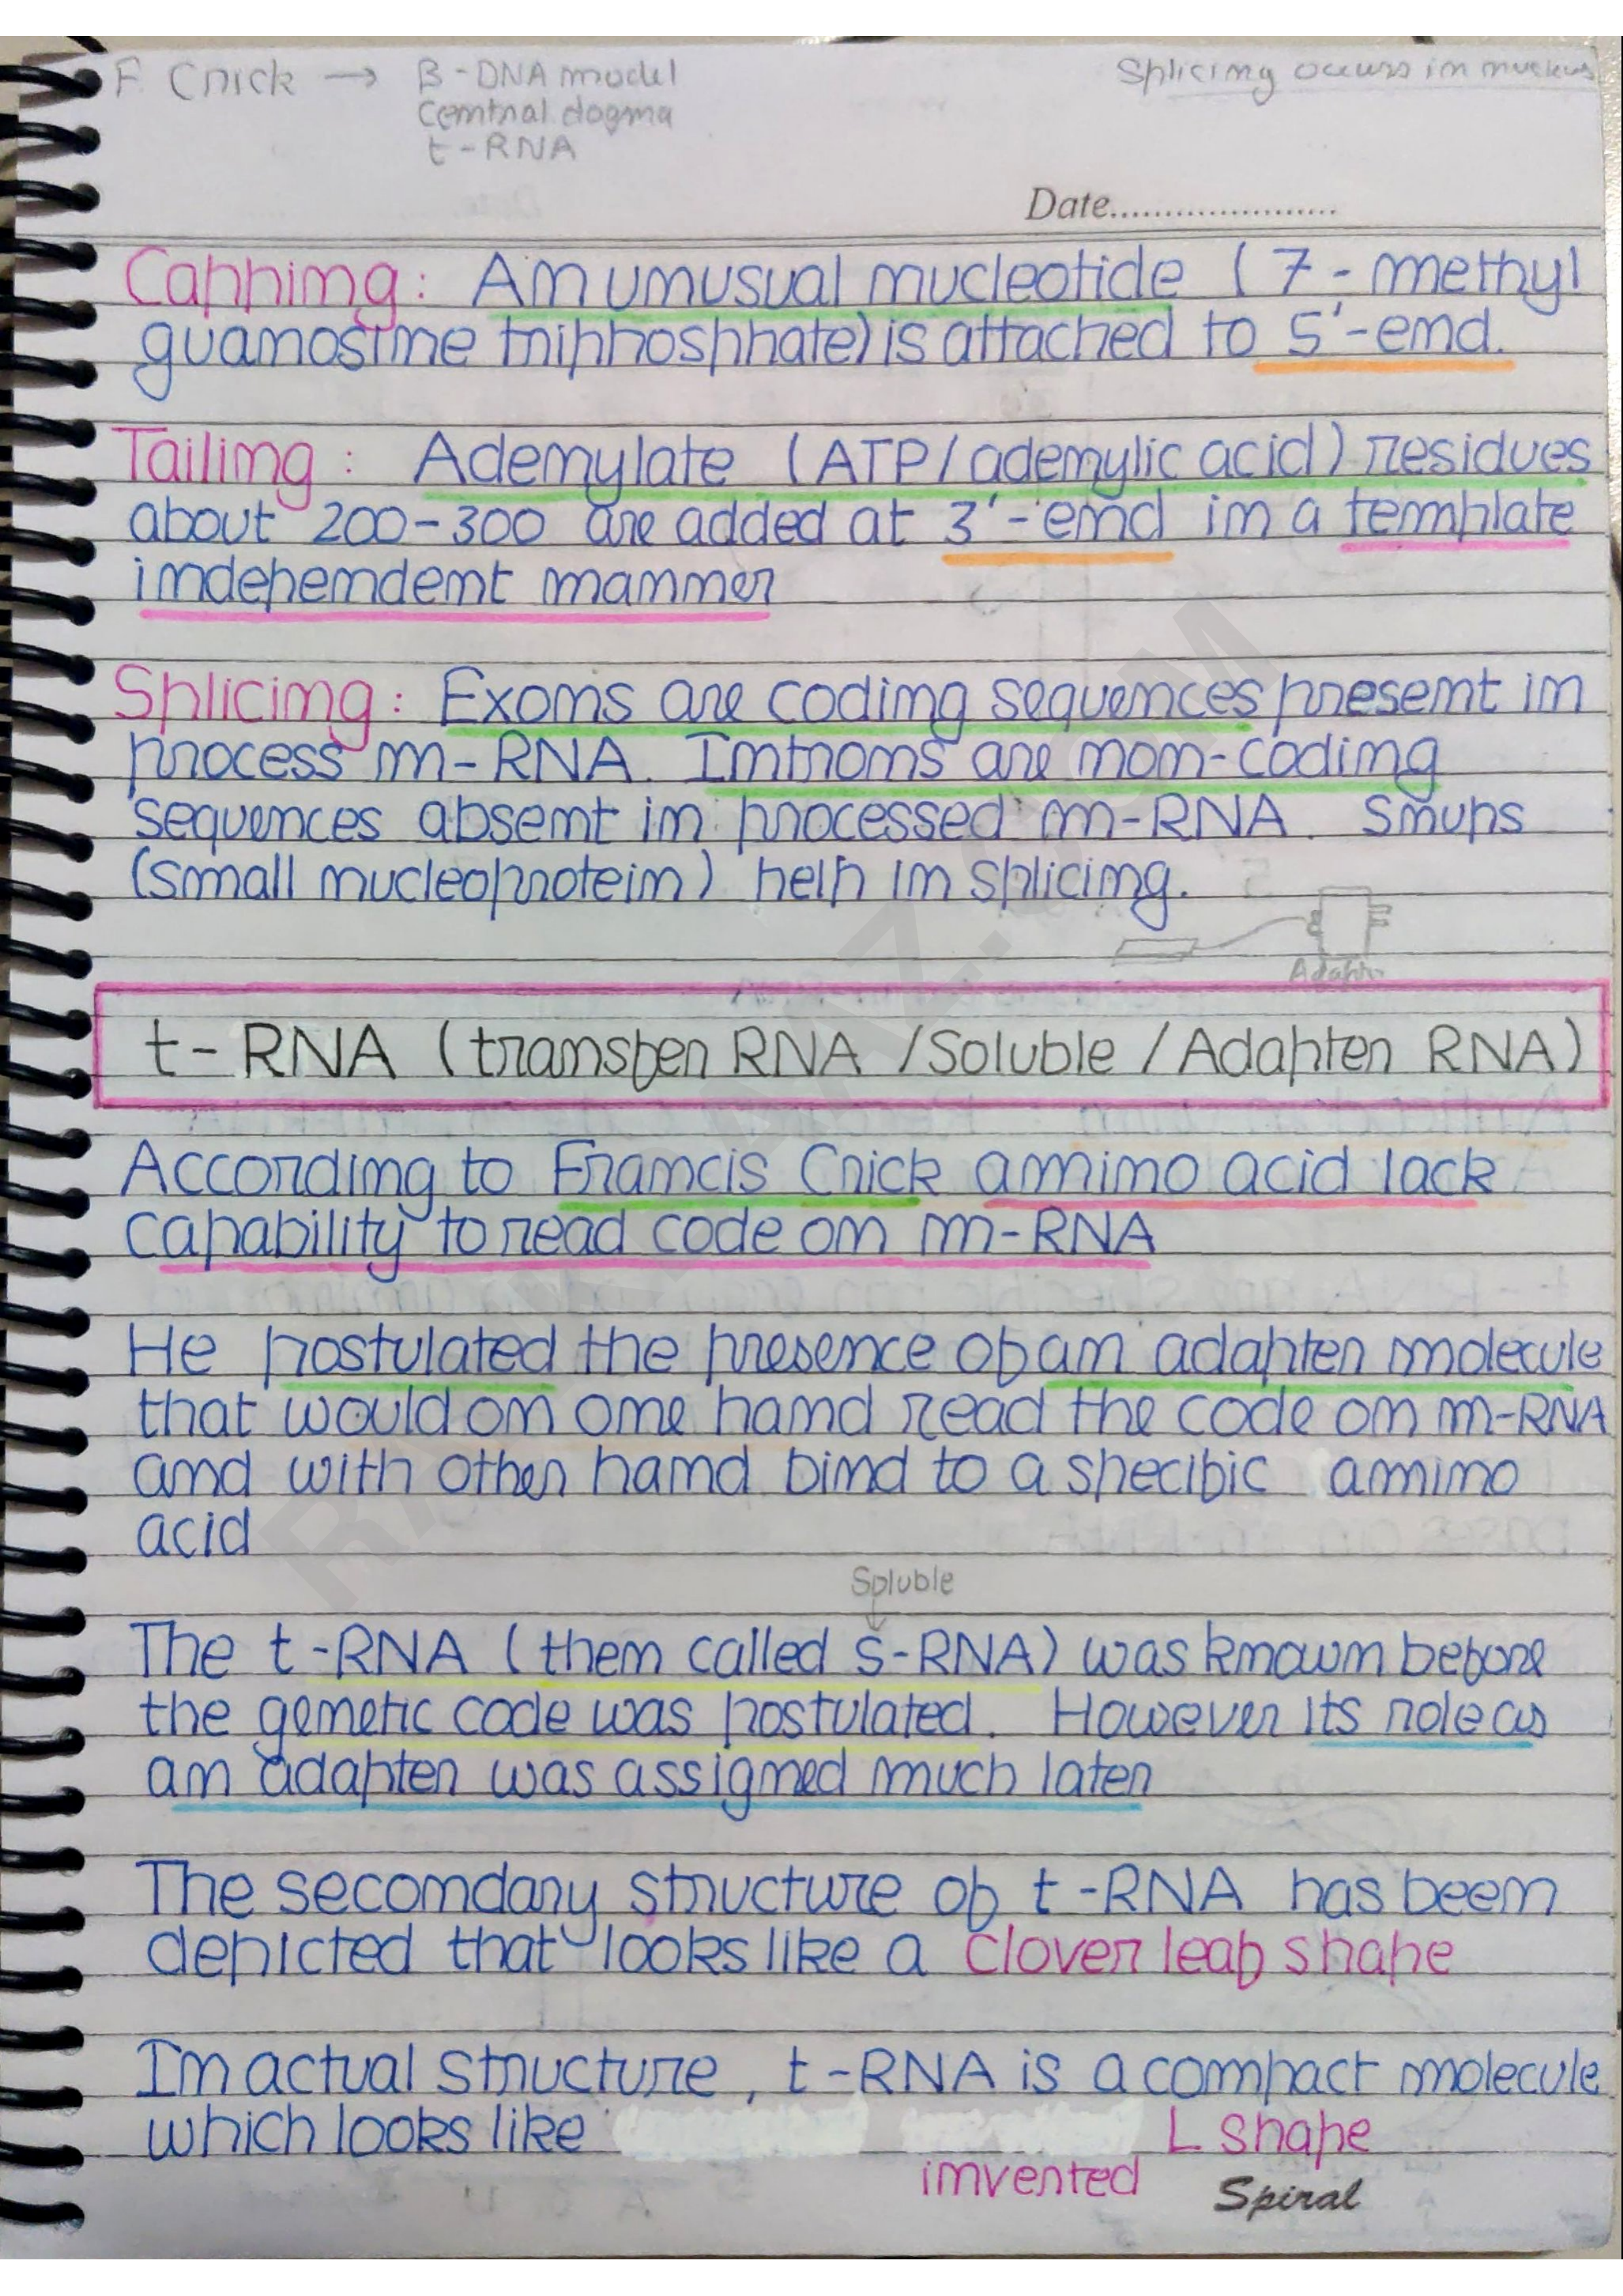 F. Crick → B-DNA model
Central dogma
t-RNA
Splicing occurs in nucleus
Date.....................
Capping: An unusual nucleotide (7-methyl
guanosine triphosphate) is attached to 5'-end.
Tailing: Adenylate (ATP/adenylic acid) residues
about 200-300 are added at 3'-end in a template
independent manner
Splicing: Exons are coding sequences present in
process m-RNA. Introns are non-coding
sequences absent in processed m-RNA. Snups
(small nucleoprotein) help in splicing.
t-RNA (transfer RNA /Soluble /Adapter RNA)
According to Francis Crick amino acid lack
capability to read code on m-RNA
He postulated the presence of an adapter molecule
that would on one hand read the code on m-RNA
and with other hand bind to a specific amino
acid
Soluble
The t-RNA (then called s-RNA) was known before
the genetic code was postulated. However its role as
an adapter was assigned much later
The secondary structure of t-RNA has been
depicted that looks like a clover leaf shape
In actual structure, t-RNA is a compact molecule
which looks like L shape
invented
Spiral